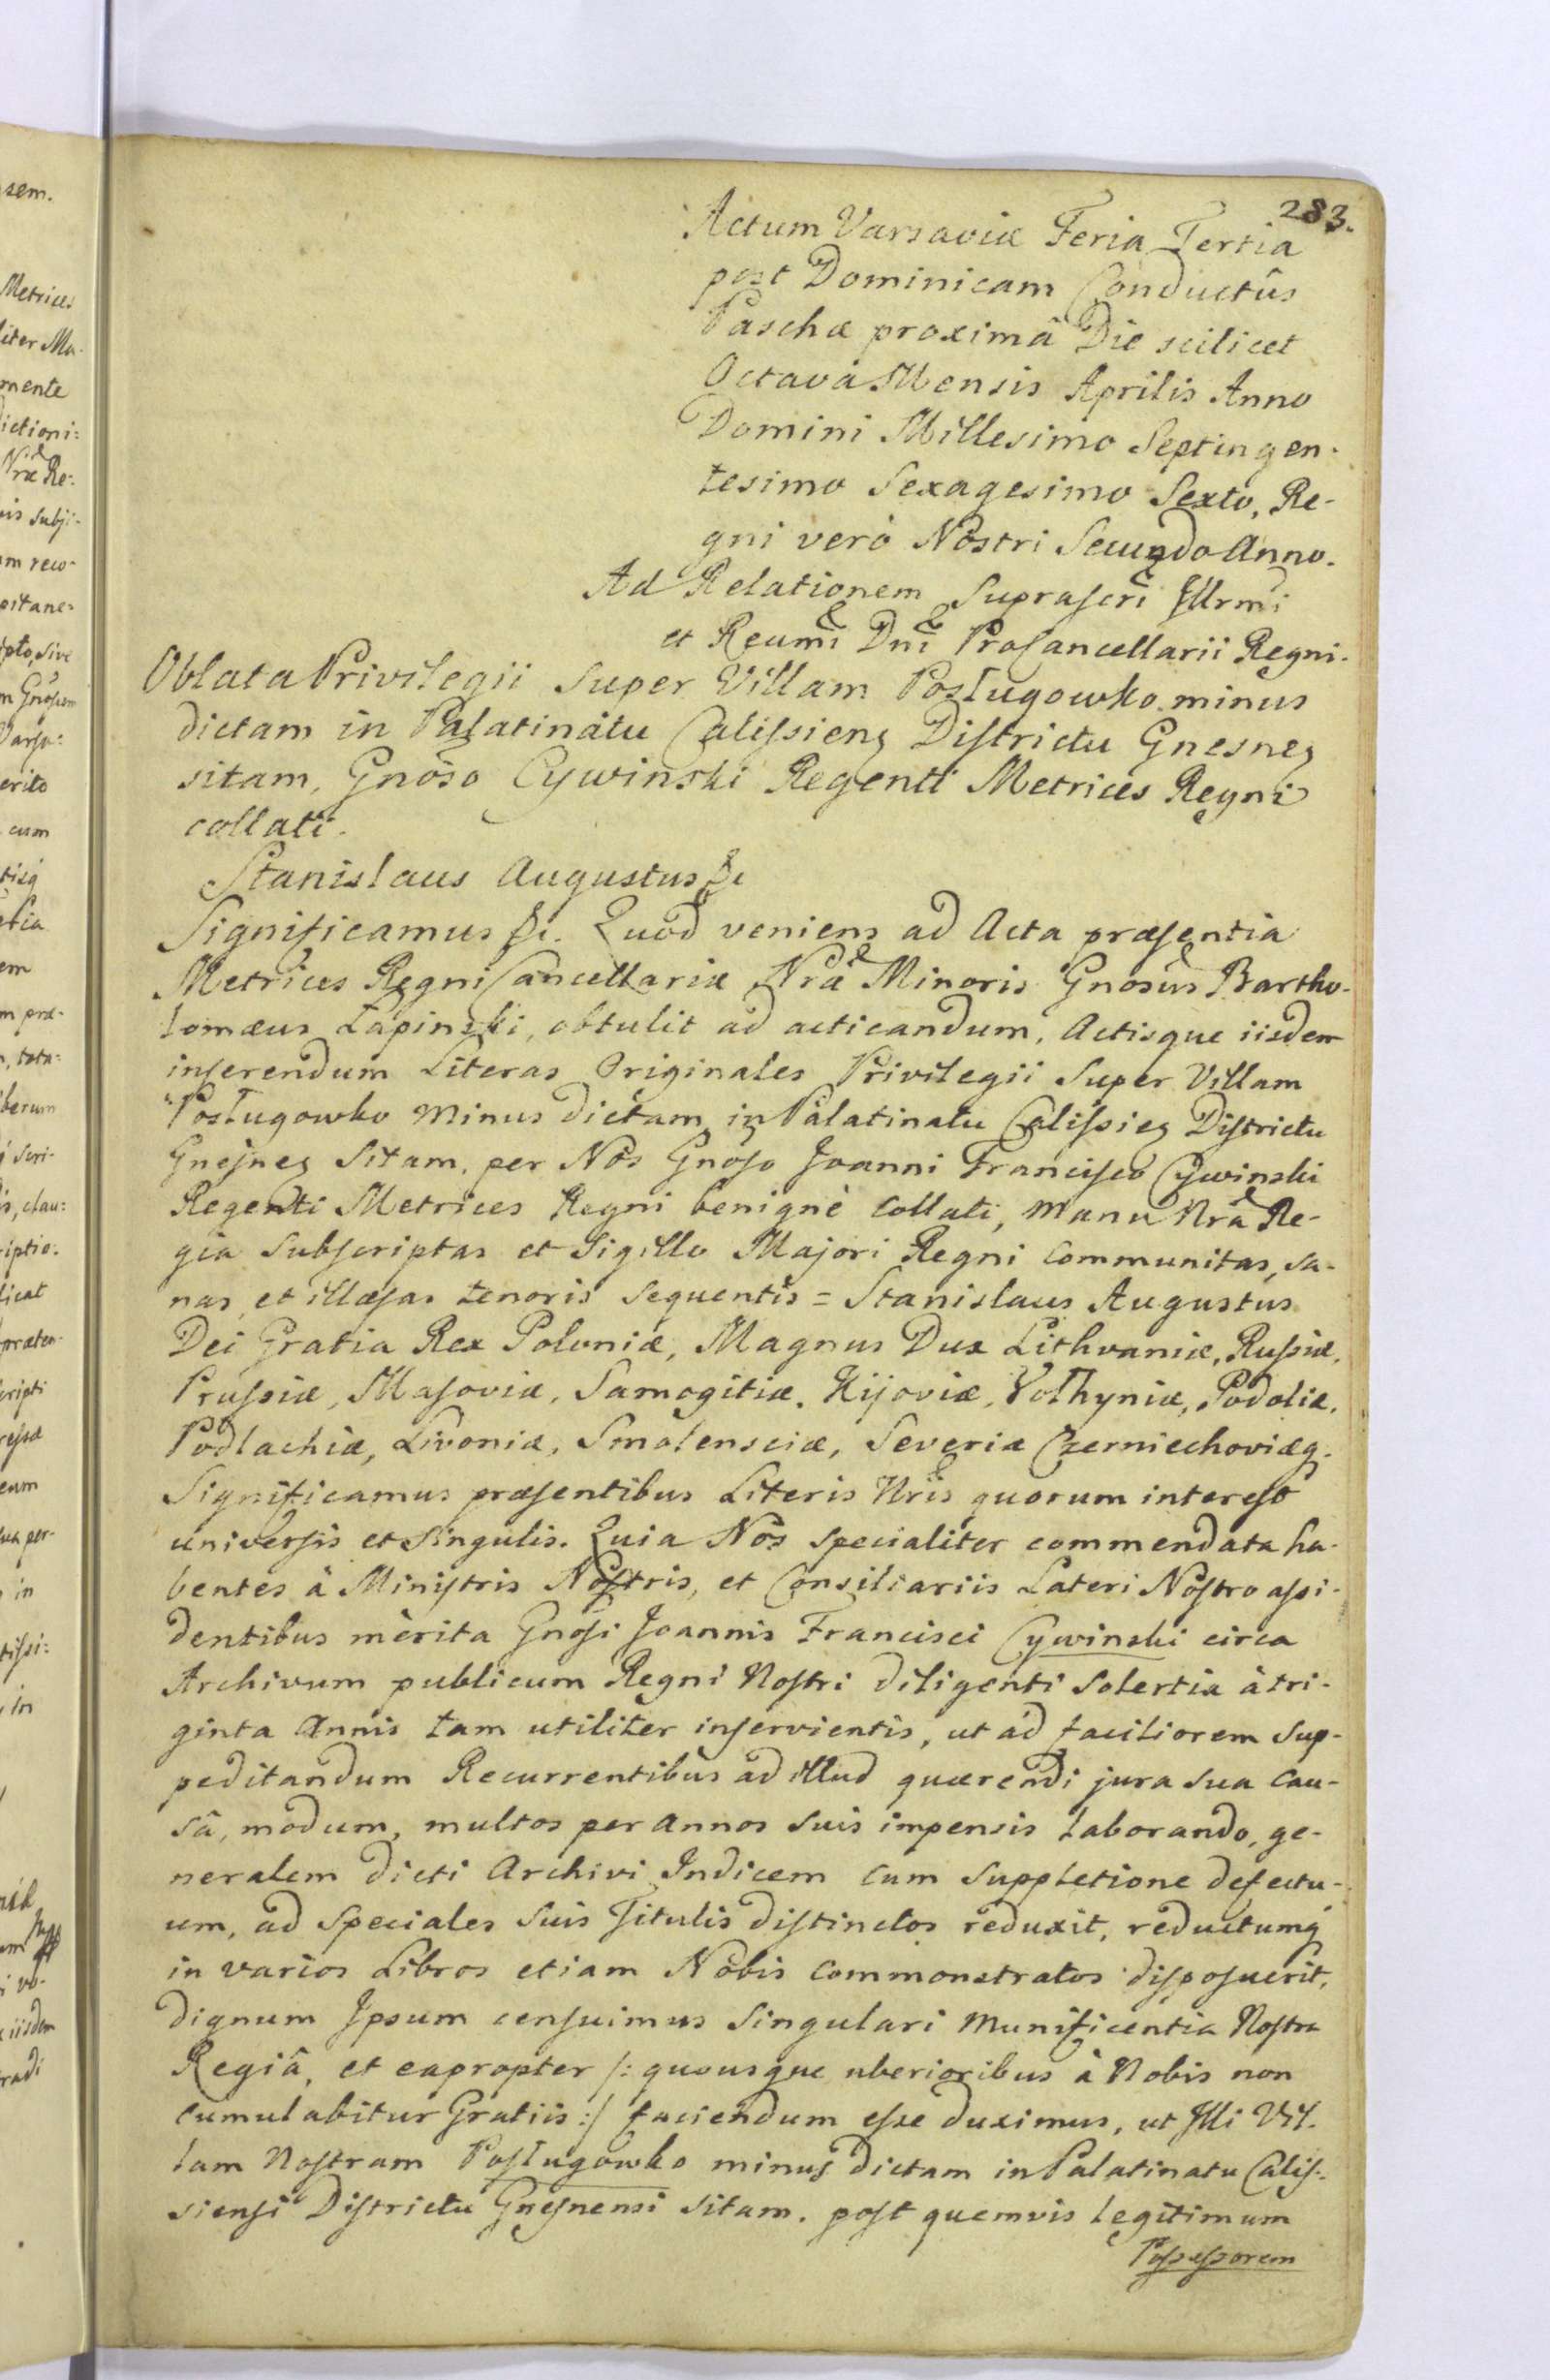 283.
Actum Varsaviæ Feria Tertia
post Dominicam Conductûs
Paschæ proximâ Die scilicet
Octavâ Mensis Aprilis Anno
Domini Millesimo Septingen-
tesimo Sexagesimo Sexto, Re-
gni verò Nostri Secundo Anno.
Ad Relationem Suprascri Illrmi
et Reumi Dni ProCancellarii Regni.
Oblata Privilegii Super Villam Posługowko minus
dictam in Palatinatu Calissieng Districtu Gnesneg
sitam, Gnoso Cywinski Regenti Metrices Regni
collati.
Stanislaus Augustus &c
Significamus &c. Quod veniens ad Acta præsentia
Metrices Regni Cancellariæ Nræ Minoris Gnosus Bartho-
lomæus Łapinski, obtulit ad acticandum, Actisque iisdem
inserendum Literas Originales Privilegii Super Villam
Posługowko minus dictam in Palatinatu Calissieg Districtu
Gnesneg Sitam, per Nos Gnoso Joanni Francisco Cywinski
Regenti Metrices Regni benignè Collati, Manu Nrâ Re-
gia Subscriptas et Sigillo Majori Regni Communitas, sa-
nas et illæsas tenoris sequentis = Stanislaus Augustus
Dei Gratia Rex Poloniæ, Magnus Dux Lithvaniæ, Russiæ,
Prussiæ, Masoviæ, Samogitiæ, Kijoviæ, Volhyniæ, Podoliæ,
Podlachiæ, Livoniæ, Smolensciæ, Severiæ Czerniechoviæq.
Significamus præsentibus Literis Nris quorum interest
universis et Singulis. Quia Nos specialiter commendata ha-
bentes à Ministris Nostris, et Consiliariis Lateri Nostro assi-
dentibus mèrita Gnosi Joannis Francisci Cywinski circa
Archivum publicum Regni Nostri diligenti Solertia à tri-
ginta Annis tam utiliter inservientis, ut ad faciliorem Sup-
peditandum Recurrentibus ad illud quærendi jura sua Cau-
sâ, modum, multos per Annos suis impensis laborando, ge-
neralem dicti Archivi Indicem Cum Suppletione defectu-
um, ad Speciales suis Titulis distinctos reduxit, reductumq
in varios Libros etiam Nobis Commonstratos disposuerit,
dignum Ipsum censuimus Singulari Munificentia Nostra
Regiâ, et eapropter /: quousque uberioribus à Nobis non
Cumulabitur Gratiis :/ faciendum esse duximus, ut Illi Vil-
lam Nostram Posługowko minus dictam in Palatinatu Calis-
siensi Districtu Gnesnensi Sitam. post quemvis legitimum
Possessorem